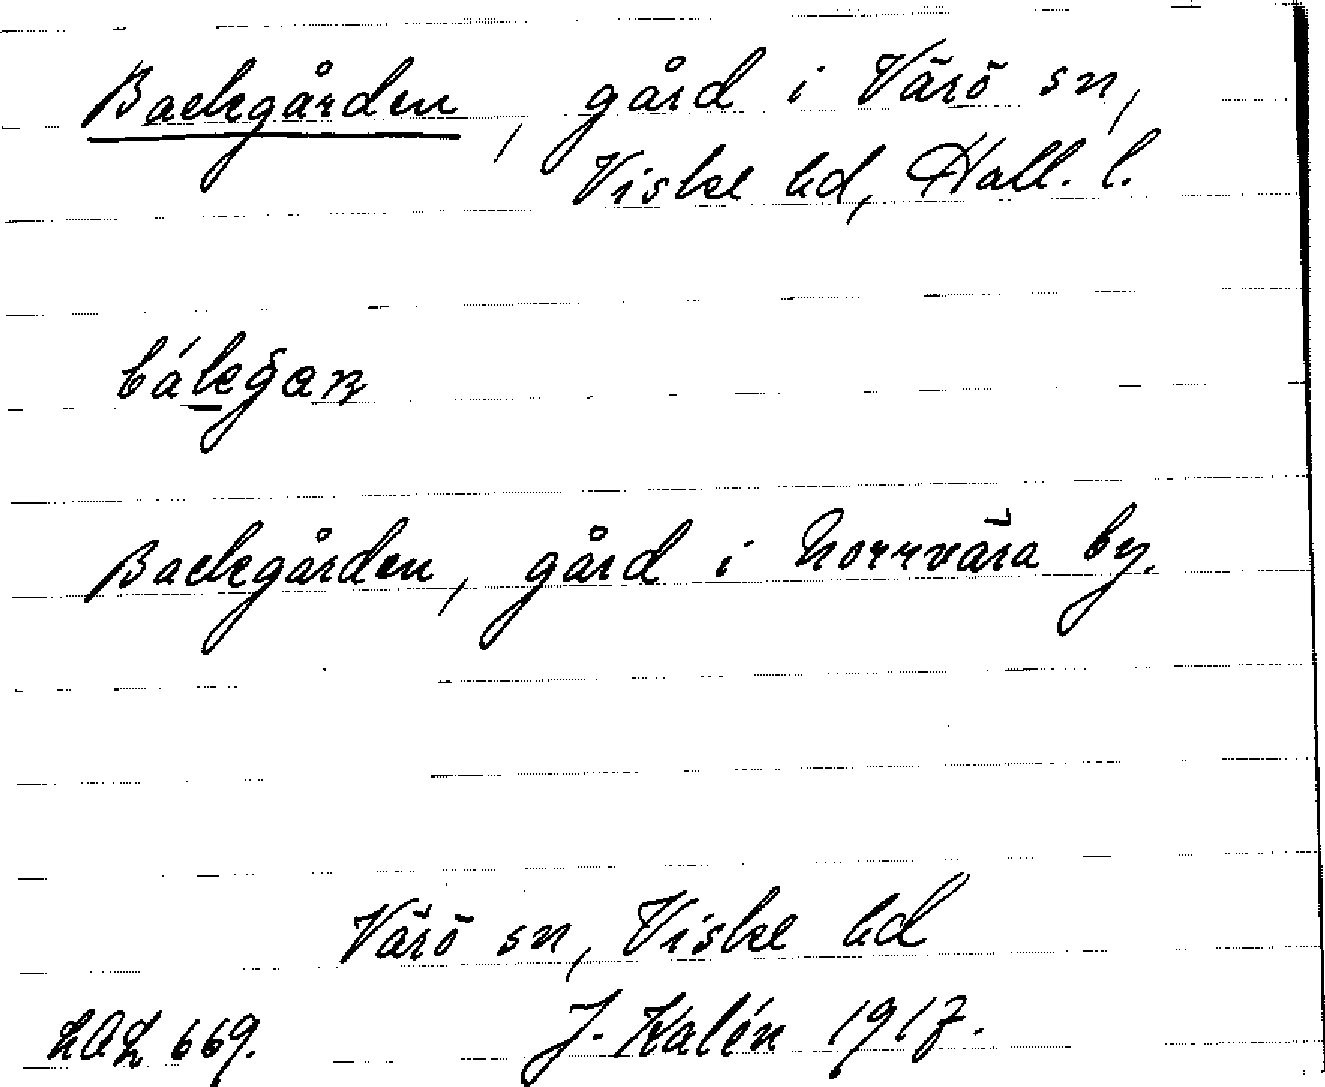 Backgården, gård i Värö sn,
Viske hd, Hall. l.
Backgården, gård i Norrvära by.
Värö sn, Viske hd
LAL 669. J. Kalén 1917.